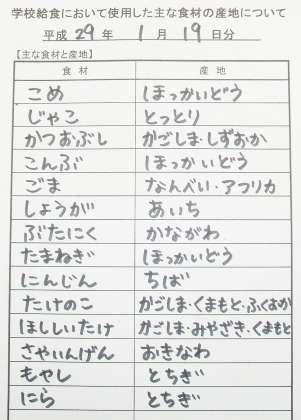 学校給食において使用した主な食材の産地について
平成 29 年 1 月 19 日分
【主な食材と産地】
食材 産地
こめ ほっかいどう
じゃこ とっとり
かつおぶし かごしま・しずおか
こんぶ ほっかいどう
ごま なんべい・アフリカ
しょうが あいち
ぶたにく かながわ
たまねぎ ほっかいどう
にんじん ちば
たけのこ かごしま・くまもと・ふくおか
ほししいたけ かごしま・みやざき・くまもと
さやいんげん おきなわ
もやし とちぎ
にら とちぎ